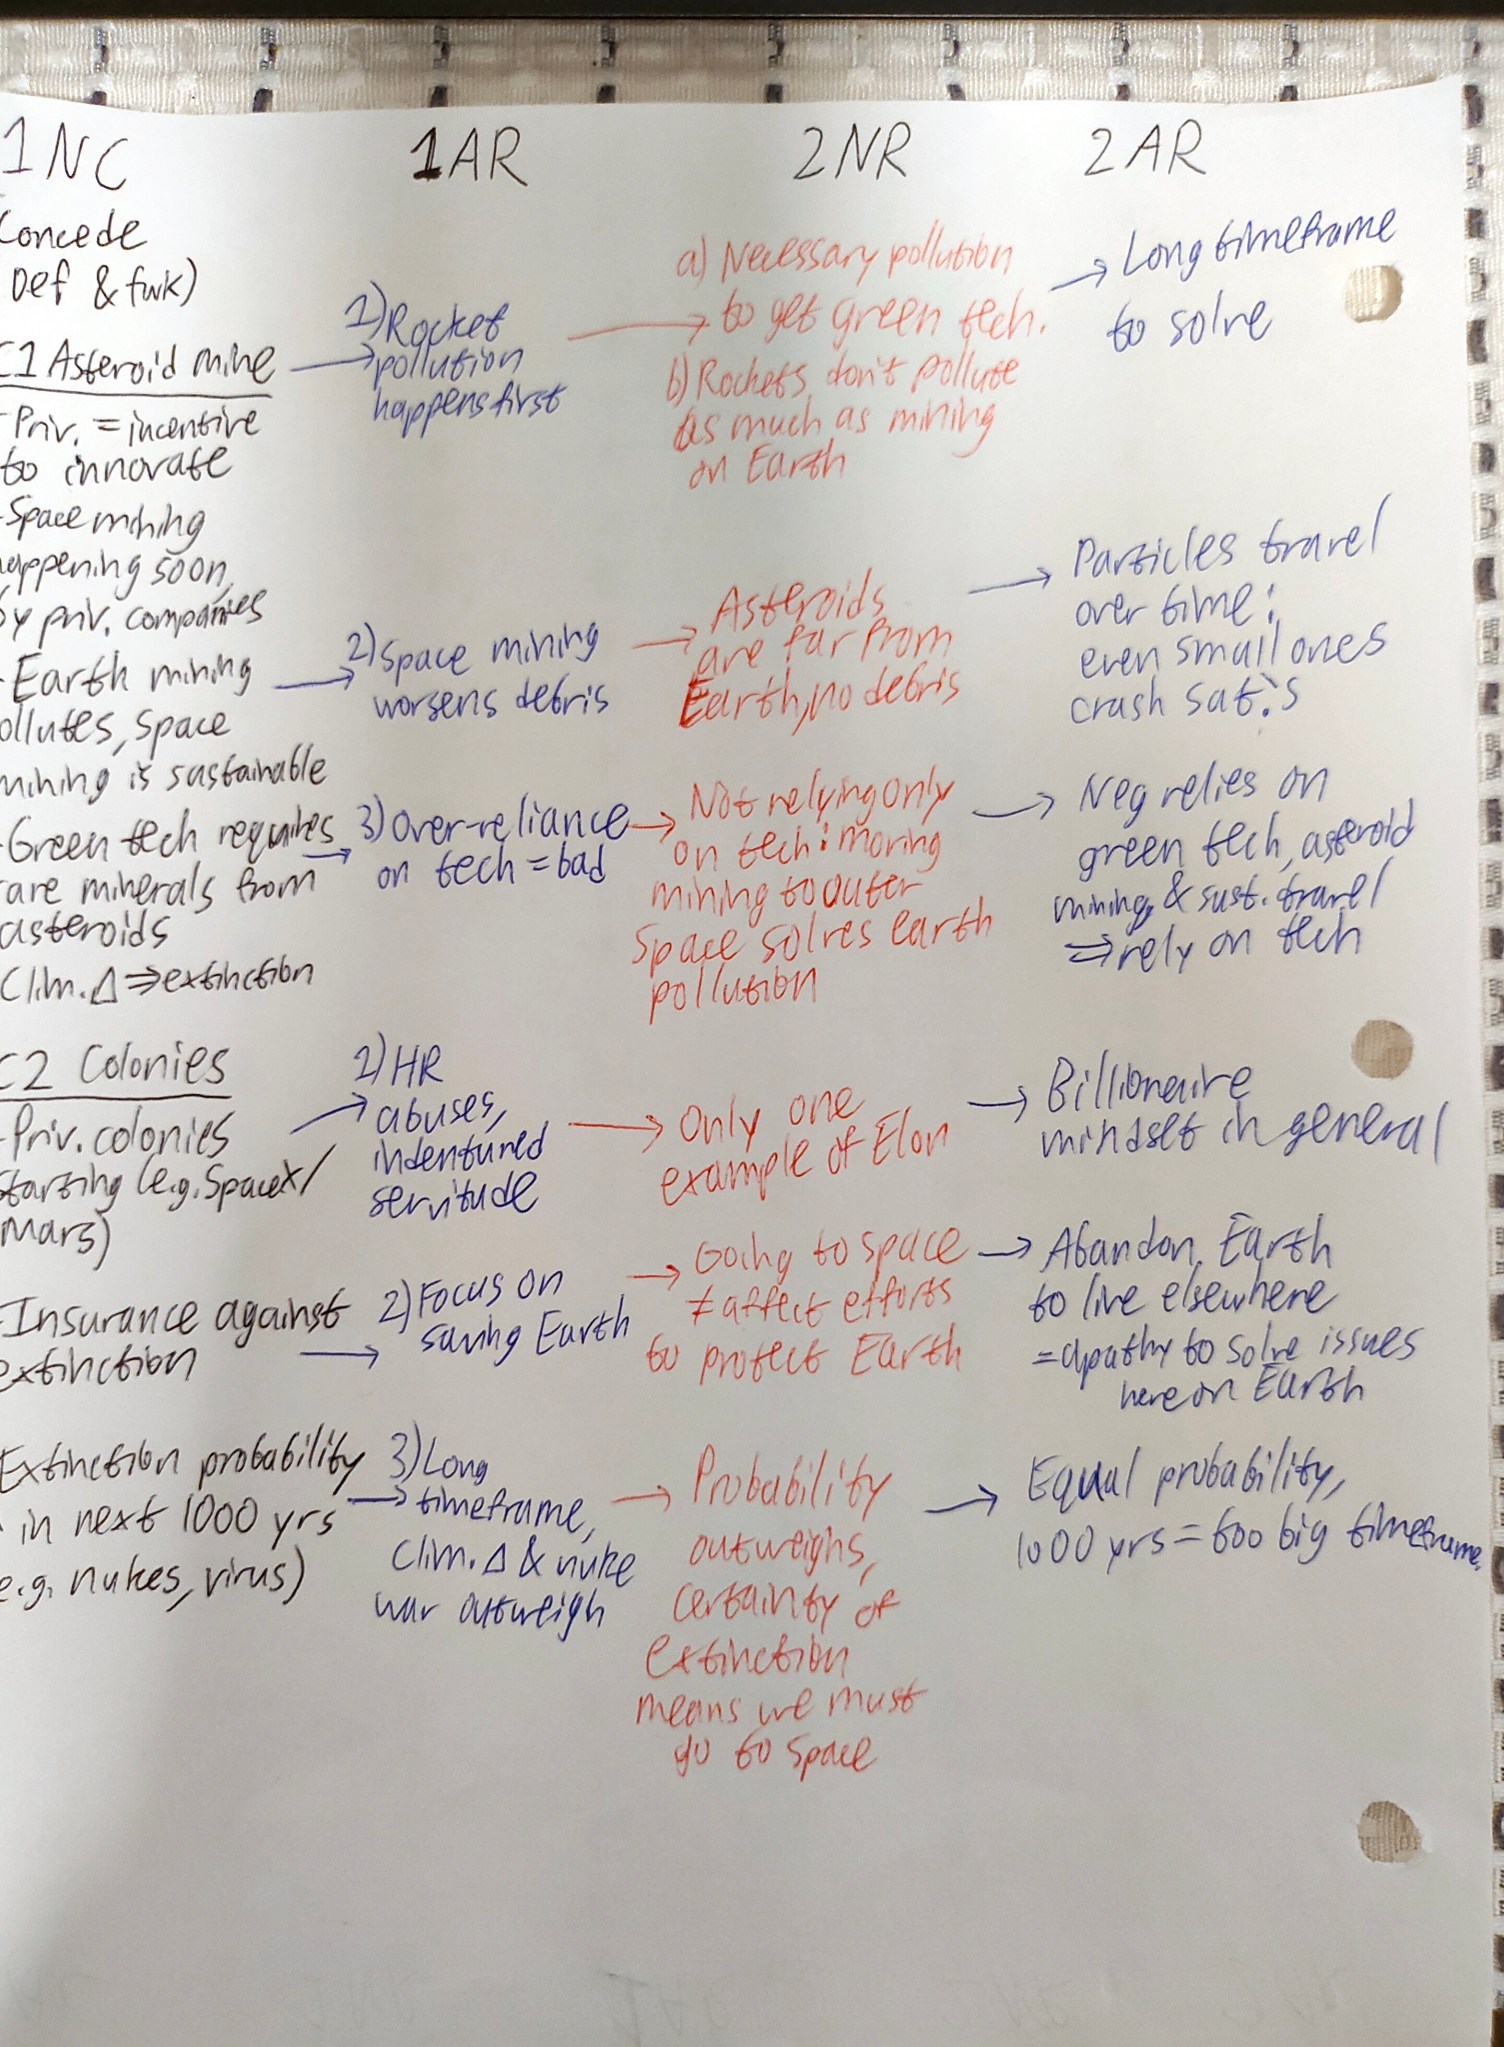 1NC
Concede
Def & fwk)
C1 Asteroid mine
- Priv. = incentive
to innovate
- Space mining
happening soon,
by priv. companies
- Earth mining
pollutes, space
mining is sustainable
- Green tech requires
rare minerals from
asteroids
Clim. Δ ⇒ extinction
C2 Colonies
- Priv. colonies
starting (e.g. SpaceX/
Mars)
- Insurance against
extinction
Extinction probability
in next 1000 yrs
e.g. nukes, virus)
1AR
1) Rocket
pollution
happens first
2) Space mining
worsens debris
3) Over-reliance
on tech = bad
1) HR
abuses,
indentured
servitude
2) Focus on
saving Earth
3) Long
timeframe,
Clim. Δ & nuke
war outweigh
2NR
a) Necessary pollution
to get green tech.
b) Rockets don't pollute
as much as mining
on Earth
Asteroids
are far from
Earth, no debris
Not relying only
on tech: moving
mining to outer
space solves earth
pollution
Only one
example of Elon
Going to space
≠ affect efforts
to protect Earth
Probability
outweighs,
certainty of
extinction
means we must
go to space
2AR
Long timeframe
to solve
Particles travel
over time:
even small ones
crash sat.'s
Neg relies on
green tech, asteroid
mining, & sust. travel
⇒ rely on tech
Billionaire
mindset in general
Abandon Earth
to live elsewhere
= apathy to solve issues
here on Earth
Equal probability,
1000 yrs = too big timeframe.